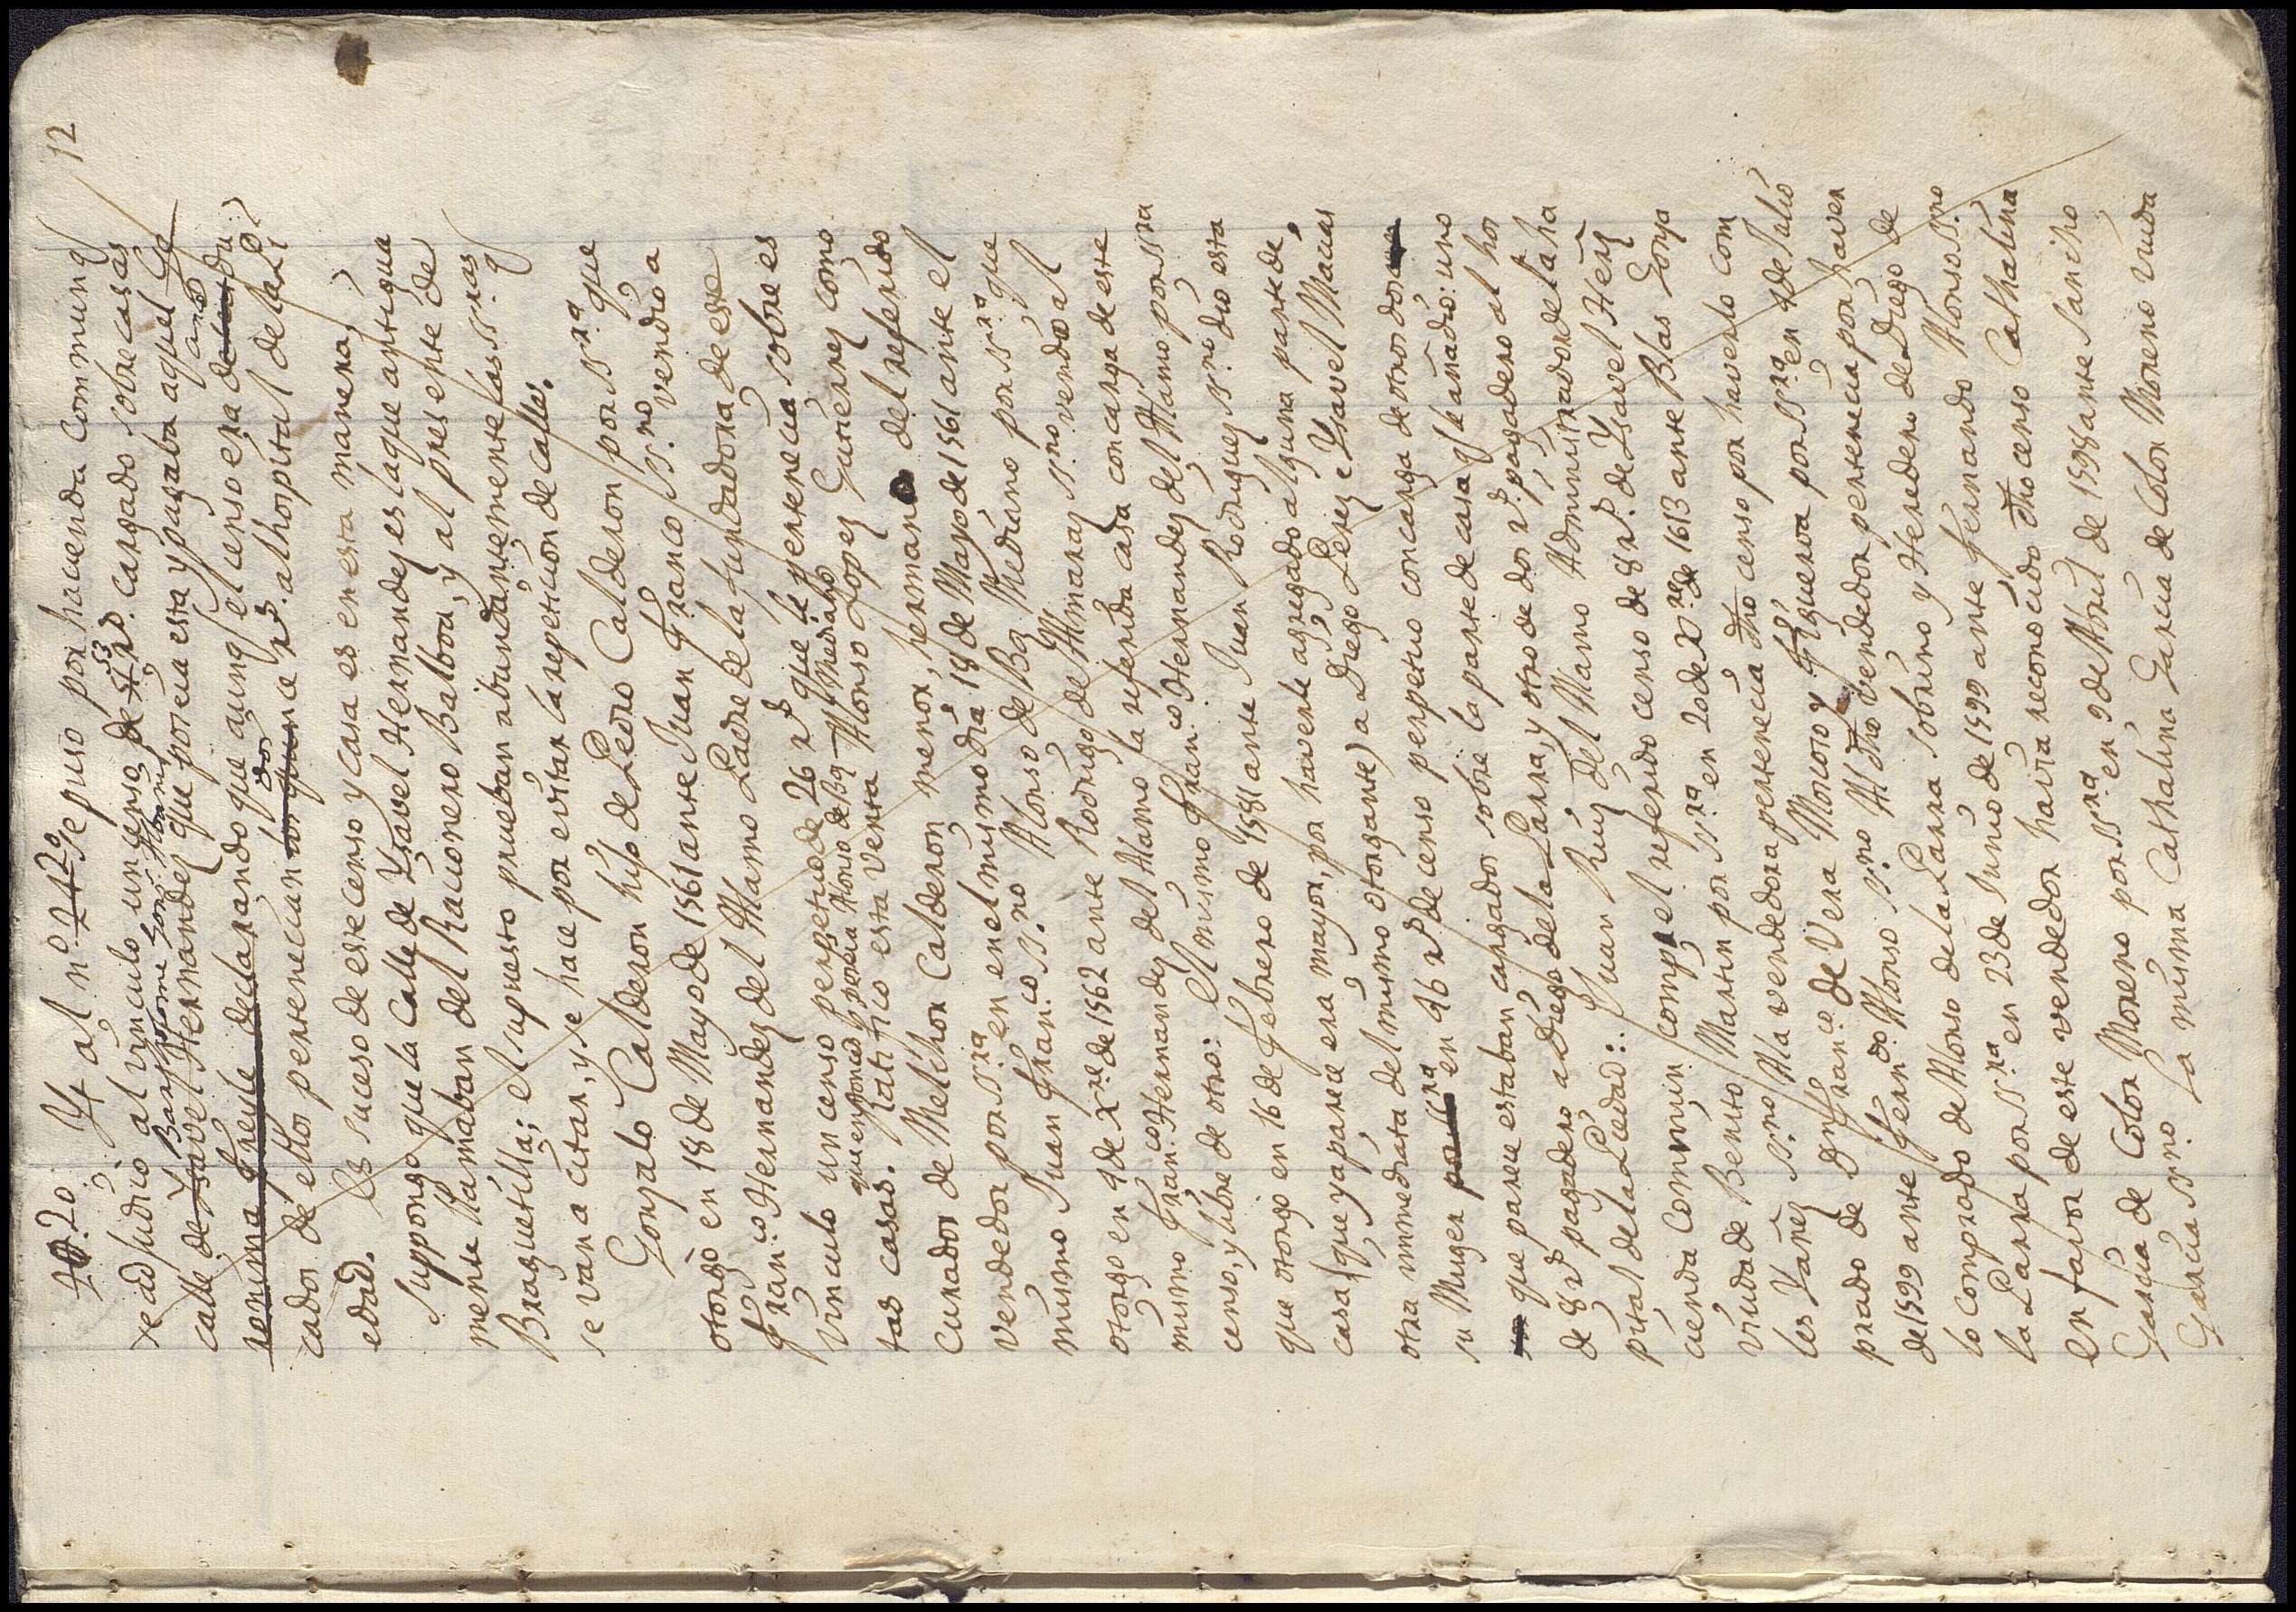 12
20. Y al n.º 242º se puso por hacienda comun q
se adjudicó al vinculo un censo de 53 rs. cargado sobre casas
calle de Ysavel Hernandez que poseia esta y pagaba aquel
Bartholome Gonz. Albañiz
declarando que aunq el censo era de
cados dos de ellos pertenecian a rs. al hospital de la Pi
edad. Es suceso de este censo y casa es en esta manera,
Suppongo que la Calle de Ysavel Hernandez es la que antigua
mente llamaban del Racionero Balboa, y al presente de
Braguetilla; el supuesto prueban abundantemente las ss.ras q
se van a citar, y se hace por evitar la repeticion de calles.
Gonzalo Calderon hijo de Pedro Calderon por ss.ra que
otorgò en 18 de Mayo de 1561 ante Juan Franco ss.no vendio a
Fran.co Hernandez del Alamo Padre de la fundadora de este
vinculo un censo perpetuo de 26 rs que le pertenecia sobre es
que entonces poseia Alonso de Bz Mediano
tas casas. Ratifico esta venta Alonso Lopez Gutierrez como
Curador de Melchor Calderon menor, hermano del referido
vendedor por ss.ra en el mismo dia 18 de Mayo de 1561 ante el
mismo Juan Fran.co ss.no Alonso de Boz Mediano por ss.ra que
otorgo en 4 de X.re de 1562 ante Rodrigo de Almaraz ss.no vendio al
mismo Fran.co Hernandez del Alamo la referida casa con carga de este
censo, y libre de otro: El mismo Fran.co Hernandez del Alamo por ss.ra
que otorgo en 16 de Febrero de 1581 ante Juan Rodriguez ss.no dio esta
casa (que ya parece era mayor, por haverle agregado alguna parte de
otra inmediata del mismo otorgante) a Diego Perez e Ysavel Macias
su Muger en 46 rs de censo perpetuo con carga de otros dos
que parece estaban cargados sobre la parte de casa q le añadió: uno
de 8 rs pagadero a Diego de la Parra, y otro de dos rs. pagadero al hos
pital de la Piedad: Juan Ruiz del Alamo Administrador de la ha
cienda Commun compró el referido censo de 8 rs. de Ysavel Hernz
viuda de Benito Martin por ss.ra en 20 de X.re de 1613 ante Blas Gonza
les Yañez ss.no A la vendedora pertenecia dho censo por haverlo com
prado de D.n Fran.co de Vera Moscoso y Figueroa por ss.ra en 4 de Julio
de 1599 ante Fern.do Alonso ss.no Al dho vendedor pertenecia por haver
lo comprado de Alonso de la Parra sobrino y Heredero de Diego de
la Parra por ss.ra en 23 de Junio de 1599 ante Fernando Alonso ss.no
en favor de este vendedor havia reconocido dho censo Cathalina
Garcia de Colos Moreno por ss.ra en 9 de Abril de 1598 ante Sancho
Garcia ss.no La misma Cathalina Garcia de Colos Moreno viuda